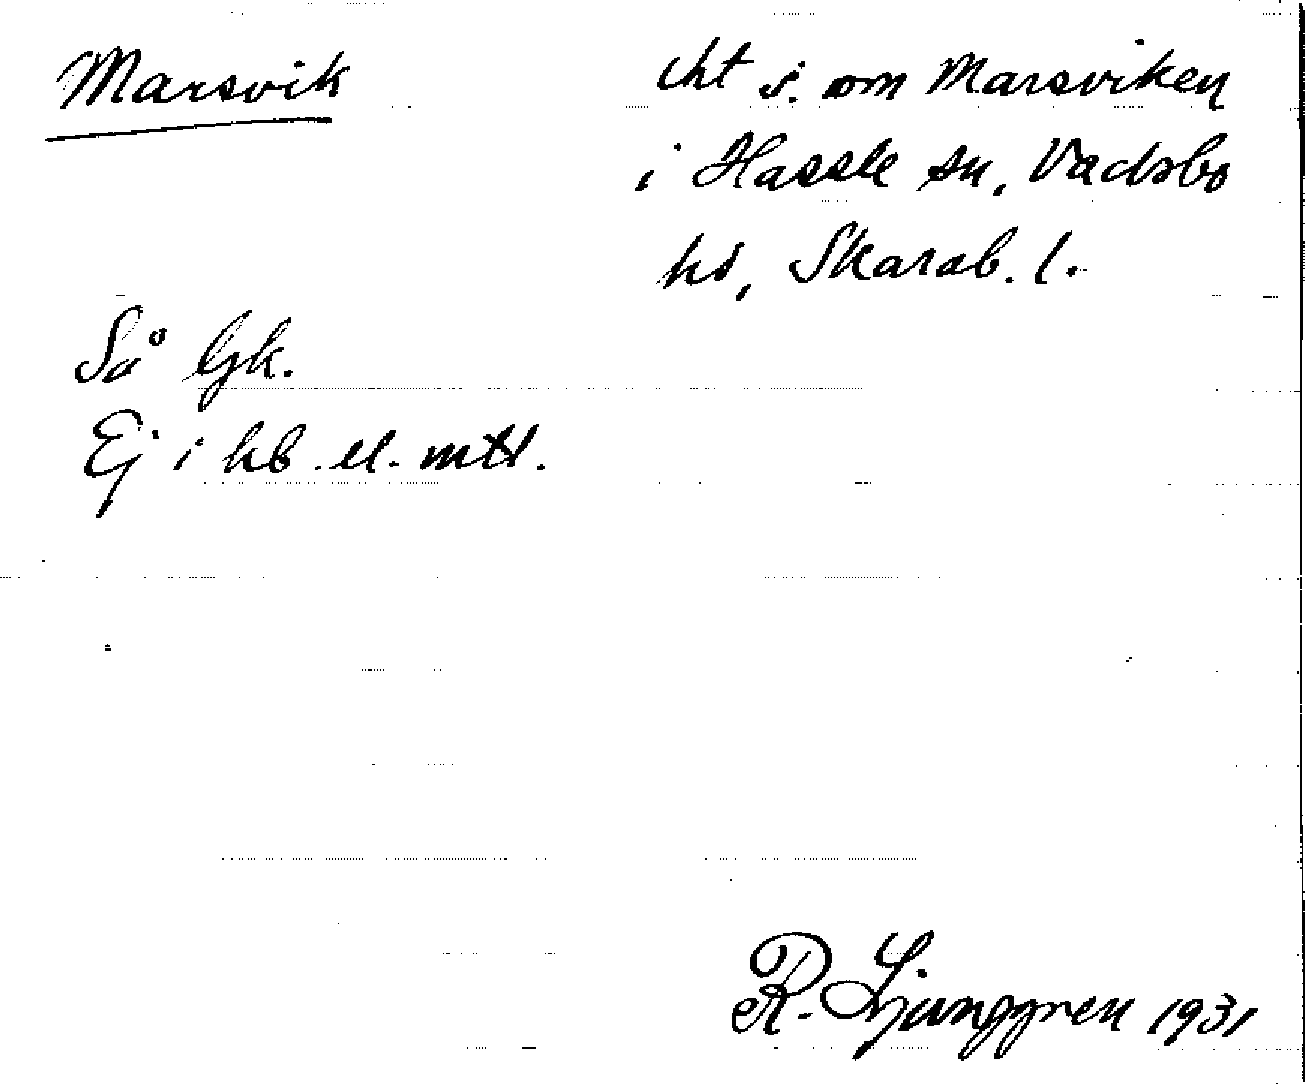 Marsvik
cht s. om Marsviken
i Hassle sn, Vadsbo
hd, Skarab. l.
Så Gk.
Ej i kb. el. mtl.
R. Ljunggren 1931